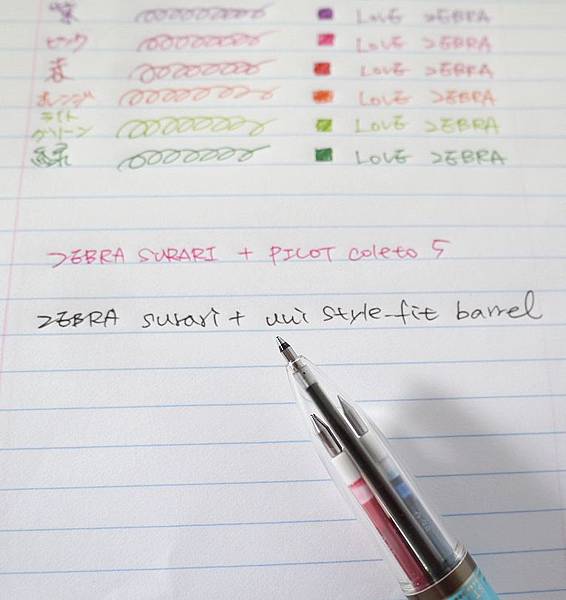 紫 LOVE ZEBRA
ピンク LOVE ZEBRA
赤 LOVE ZEBRA
オレンジ LOVE ZEBRA
ライトグリーン LOVE ZEBRA
緑 LOVE ZEBRA
ZEBRA SURARI + PILOT coleto 5
ZEBRA surari + uni style-fit barrel